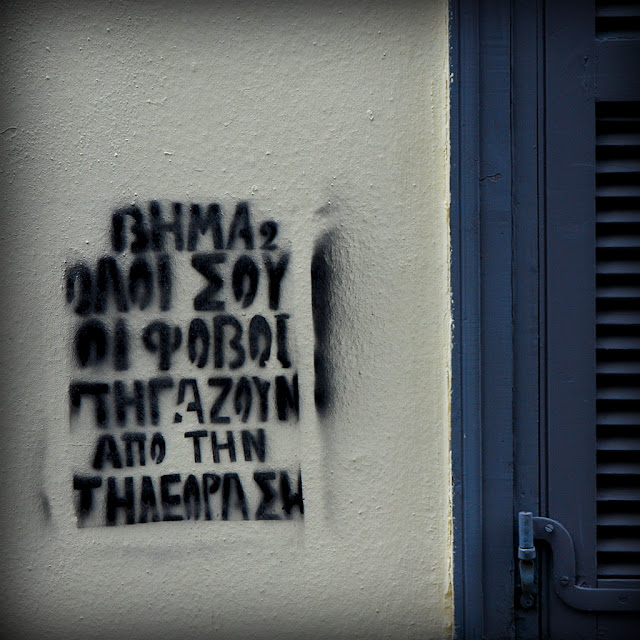 ΒΗΜΑ 2
ΟΛΟΙ ΣΟΥ
ΟΙ ΦΟΒΟΙ
ΠΗΓΑΖΟΥΝ
ΑΠΟ ΤΗΝ
ΤΗΛΕΟΡΑΣΗ